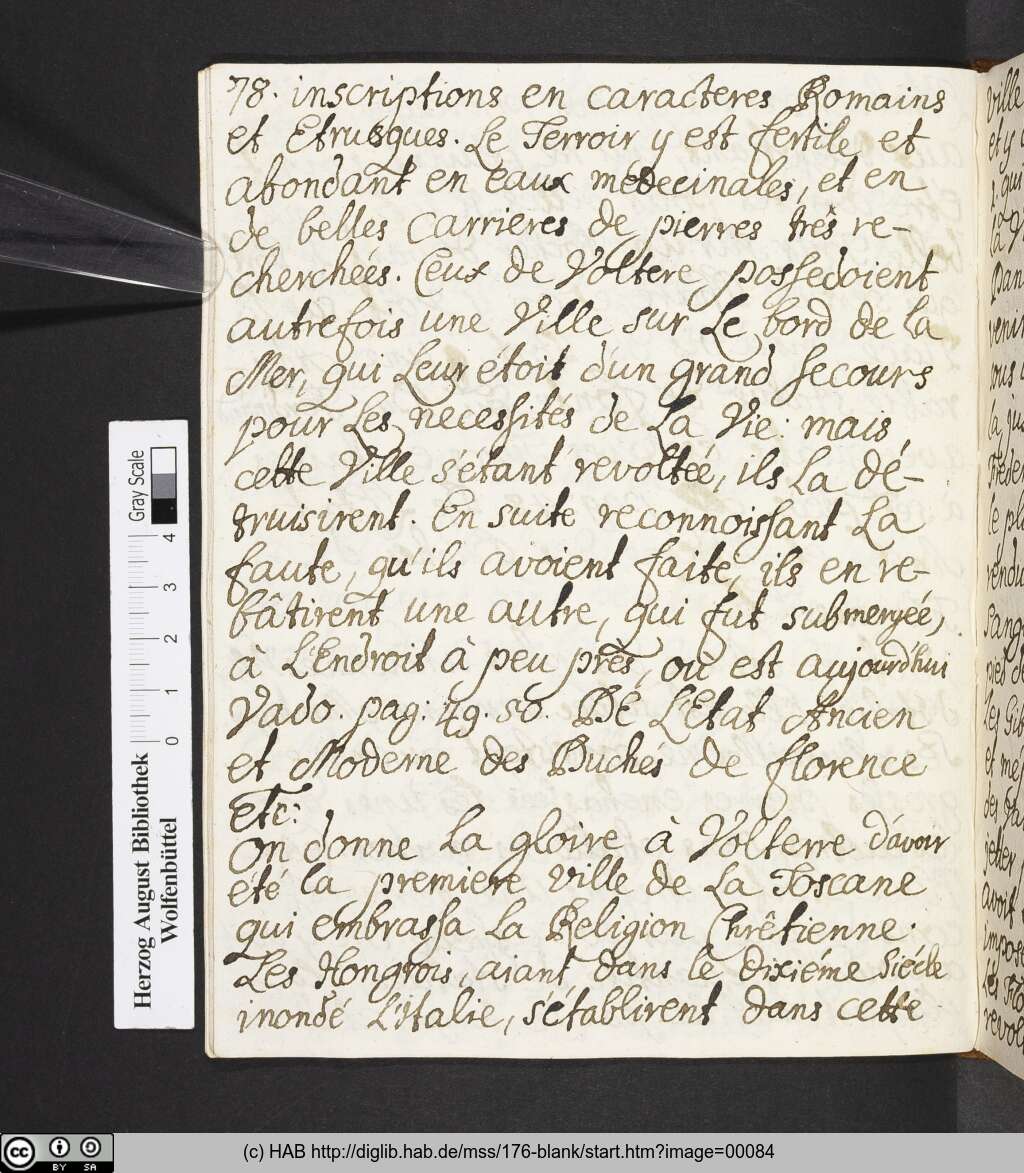 78. inscriptions en caracteres Romains
et Etrusques. Le Terroir y est fertile et
abondant en eaux médecinales, et en
de belles carrieres de pierres très re-
cherchées. Ceux de Voltere possedoient
autrefois une Ville sur Le bord de la
Mer, qui Leur étoit d'un grand secours
pour Les necessités de La Vie: mais
cette Ville s'étant revoltée, ils La dé-
truisirent. En suite reconnoissant La
faute, qu'ils avoient faite, ils en re-
bâtirent une autre, qui fut submergée,
à L'Endroit à peu près, où est aujourd'hui
Vado. pag: 49. 50. De L'Etat Ancien
et Moderne des Duchés de florence
etc:
On donne La gloire à Volterre d'avoir
été la premiere ville de La Toscane
qui embrassa La Religion Chrêtienne.
Les Hongrois, aiant dans le dixiéme Siécle
inondé L'Italie, s'établirent dans cette
ville
et y
qui
Gray Scale
0 1 2 3 4
Herzog August Bibliothek
Wolfenbüttel
CC BY SA
(c) HAB http://diglib.hab.de/mss/176-blank/start.htm?image=00084